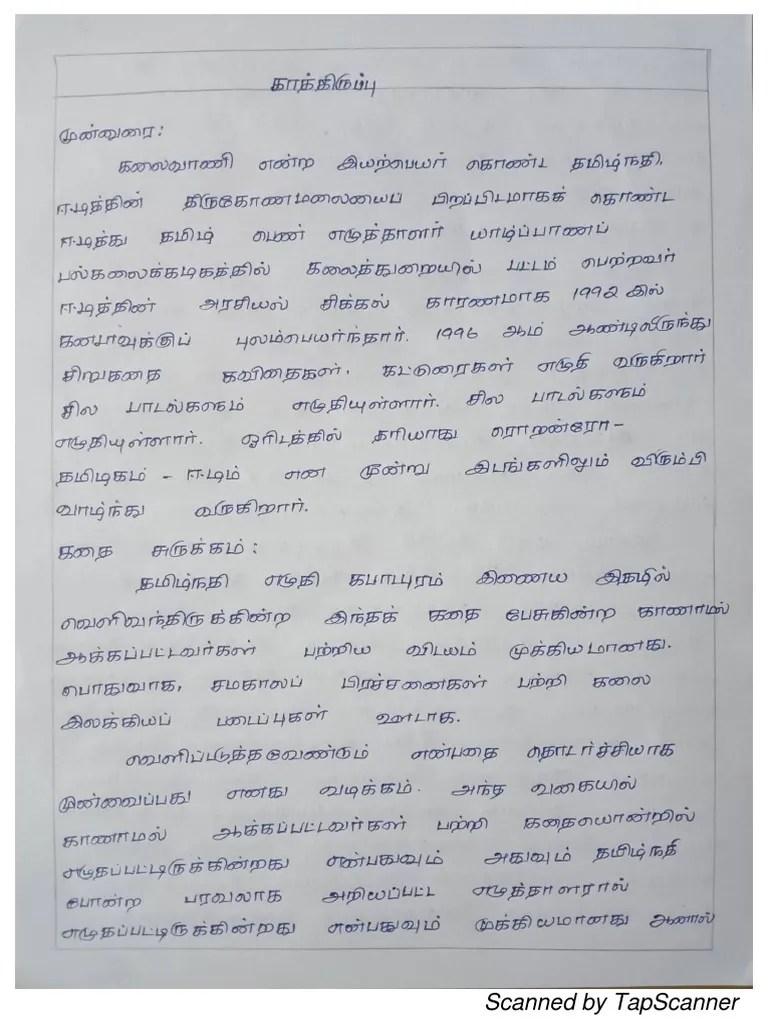 காத்திருப்பு
முன்னுரை:
கலைவாணி என்ற இயற்பெயர் கொண்ட தமிழ்நதி,
ஈழத்தின் திருகோணமலையைப் பிறப்பிடமாகக் கொண்ட
ஈழத்து தமிழ் பெண் எழுத்தாளர் யாழ்ப்பாணப்
பல்கலைக்கழகத்தில் கலைத்துறையில் பட்டம் பெற்றவர்
ஈழத்தின் அரசியல் சிக்கல் காரணமாக 1992 இல்
கனடாவுக்குப் புலம்பெயர்ந்தார். 1996 ஆம் ஆண்டிலிருந்து
சிறுகதை கவிதைகள், கட்டுரைகள் எழுதி வருகிறார்
சில பாடல்களும் எழுதியுள்ளார். சில பாடல்களும்
எழுதியுள்ளார். ஓரிடத்தில் தரியாது ரொறன்ரோ -
தமிழகம் - ஈழம் என மூன்று இடங்களிலும் விரும்பி
வாழ்ந்து வருகிறார்.
கதை சுருக்கம்:
தமிழ்நதி எழுதி கபாடபுரம் இணைய இதழில்
வெளிவந்திருக்கின்ற இந்தக் கதை பேசுகின்ற காணாமல்
ஆக்கப்பட்டவர்கள் பற்றிய விடயம் முக்கியமானது.
பொதுவாக, சமகாலப் பிரச்சனைகள் பற்றி கலை
இலக்கியப் படைப்புகள் ஊடாக.
வெளிப்படுத்தவேண்டும் என்பதை தொடர்ச்சியாக
முன்வைப்பது எனது வழக்கம். அந்த வகையில்
காணாமல் ஆக்கப்பட்டவர்கள் பற்றி கதையொன்றில்
எழுதப்பட்டிருக்கின்றது என்பதுவும் அதுவும் தமிழ்நதி
போன்ற பரவலாக அறியப்பட்ட எழுத்தாளரால்
எழுதப்பட்டிருக்கின்றது என்பதுவும் முக்கியமானது ஆனால்
Scanned by TapScanner